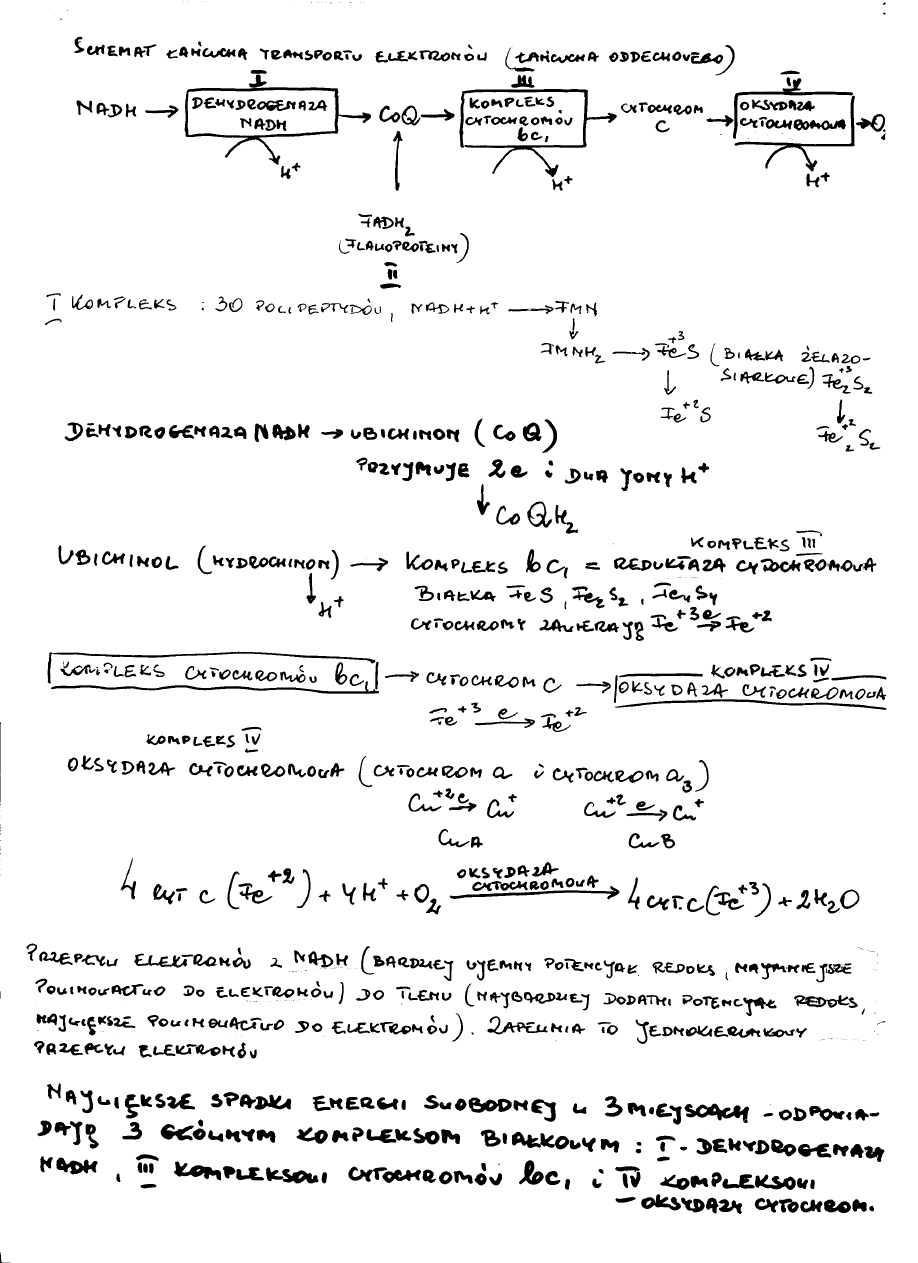 SCHEMAT ŁAŃCUCHA TRANSPORTU ELEKTRONÓW (ŁAŃCUCHA ODDECHOWEGO)
I III IV
NADH → DEHYDROGENAZA NADH → CoQ → KOMPLEKS CYTOCHROMÓW bc₁ → CYTOCHROM C → OKSYDAZA CYTOCHROMOWA → O₂
H⁺ H⁺ H⁺
FADH₂
(FLAWOPROTEINY)
II
I KOMPLEKS : 30 POLIPEPTYDÓW, NADH+H⁺ → FMN
↓
FMNH₂ → Fe⁺³S (BIAŁKA ŻELAZO-
SIARKOWE) Fe₂⁺³S₂
↓ ↓
Fe⁺²S Fe₂⁺²S₂
DEHYDROGENAZA NADH → UBICHINON (CoQ)
PRZYJMUJE 2e i DWA JONY H⁺
↓
CoQH₂
UBICHINOL (HYDROCHINON) → KOMPLEKS bc₁ = REDUKTAZA CYTOCHROMOWA
KOMPLEKS III
↓ H⁺
BIAŁKA FeS, Fe₂S₂, Fe₄S₄
CYTOCHROMY ZAWIERAJĄ Fe⁺³ e→ Fe⁺²
KOMPLEKS IV
KOMPLEKS CYTOCHROMÓW bc₁ → CYTOCHROM C → OKSYDAZA CYTOCHROMOWA
Fe⁺³ e→ Fe⁺²
KOMPLEKS IV
OKSYDAZA CYTOCHROMOWA (CYTOCHROM a i CYTOCHROM a₃)
Cu⁺² e→ Cu⁺ Cu⁺² e→ Cu⁺
CuA CuB
4 CYT C (Fe⁺²) + 4H⁺ + O₂ OKSYDAZA CYTOCHROMOWA → 4 CYT.C (Fe⁺³) + 2H₂O
PRZEPŁYW ELEKTRONÓW Z NADH (BARDZIEJ UJEMNY POTENCJAŁ REDOKS, NAJMNIEJSZE
POWINOWACTWO DO ELEKTRONÓW) DO TLENU (NAJBARDZIEJ DODATNI POTENCJAŁ REDOKS,
NAJWIĘKSZE POWINOWACTWO DO ELEKTRONÓW). ZAPEWNIA TO JEDNOKIERUNKOWY
PRZEPŁYW ELEKTRONÓW
NAJWIĘKSZE SPADKI ENERGII SWOBODNEJ W 3 MIEJSCACH - ODPOWIA-
DAJĄ 3 GŁÓWNYM KOMPLEKSOM BIAŁKOWYM : I - DEHYDROGENAZA
NADH, III KOMPLEKSOWI CYTOCHROMÓW bc₁ i IV KOMPLEKSOWI
- OKSYDAZY CYTOCHROM.